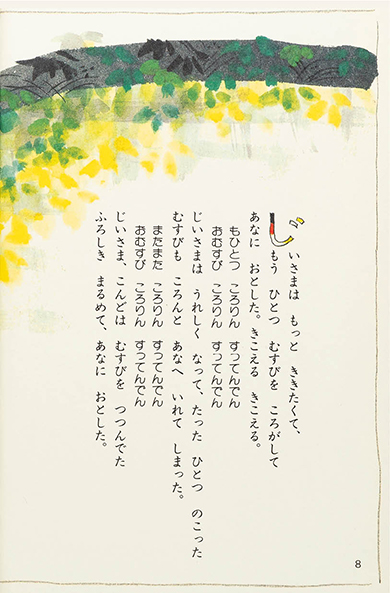 じいさまは もっと ききたくて、
もう ひとつ むすびを ころがして
あなに おとした。きこえる きこえる。
もひとつ ころりん すってんでん
おむすび ころりん すってんでん
じいさまは うれしく なって、たった ひとつ のこった
むすびも ころんと あなへ いれて しまった。
またまた ころりん すってんでん
おむすび ころりん すってんでん
じいさま、こんどは むすびを つつんでた
ふろしき まるめて、あなに おとした。
8